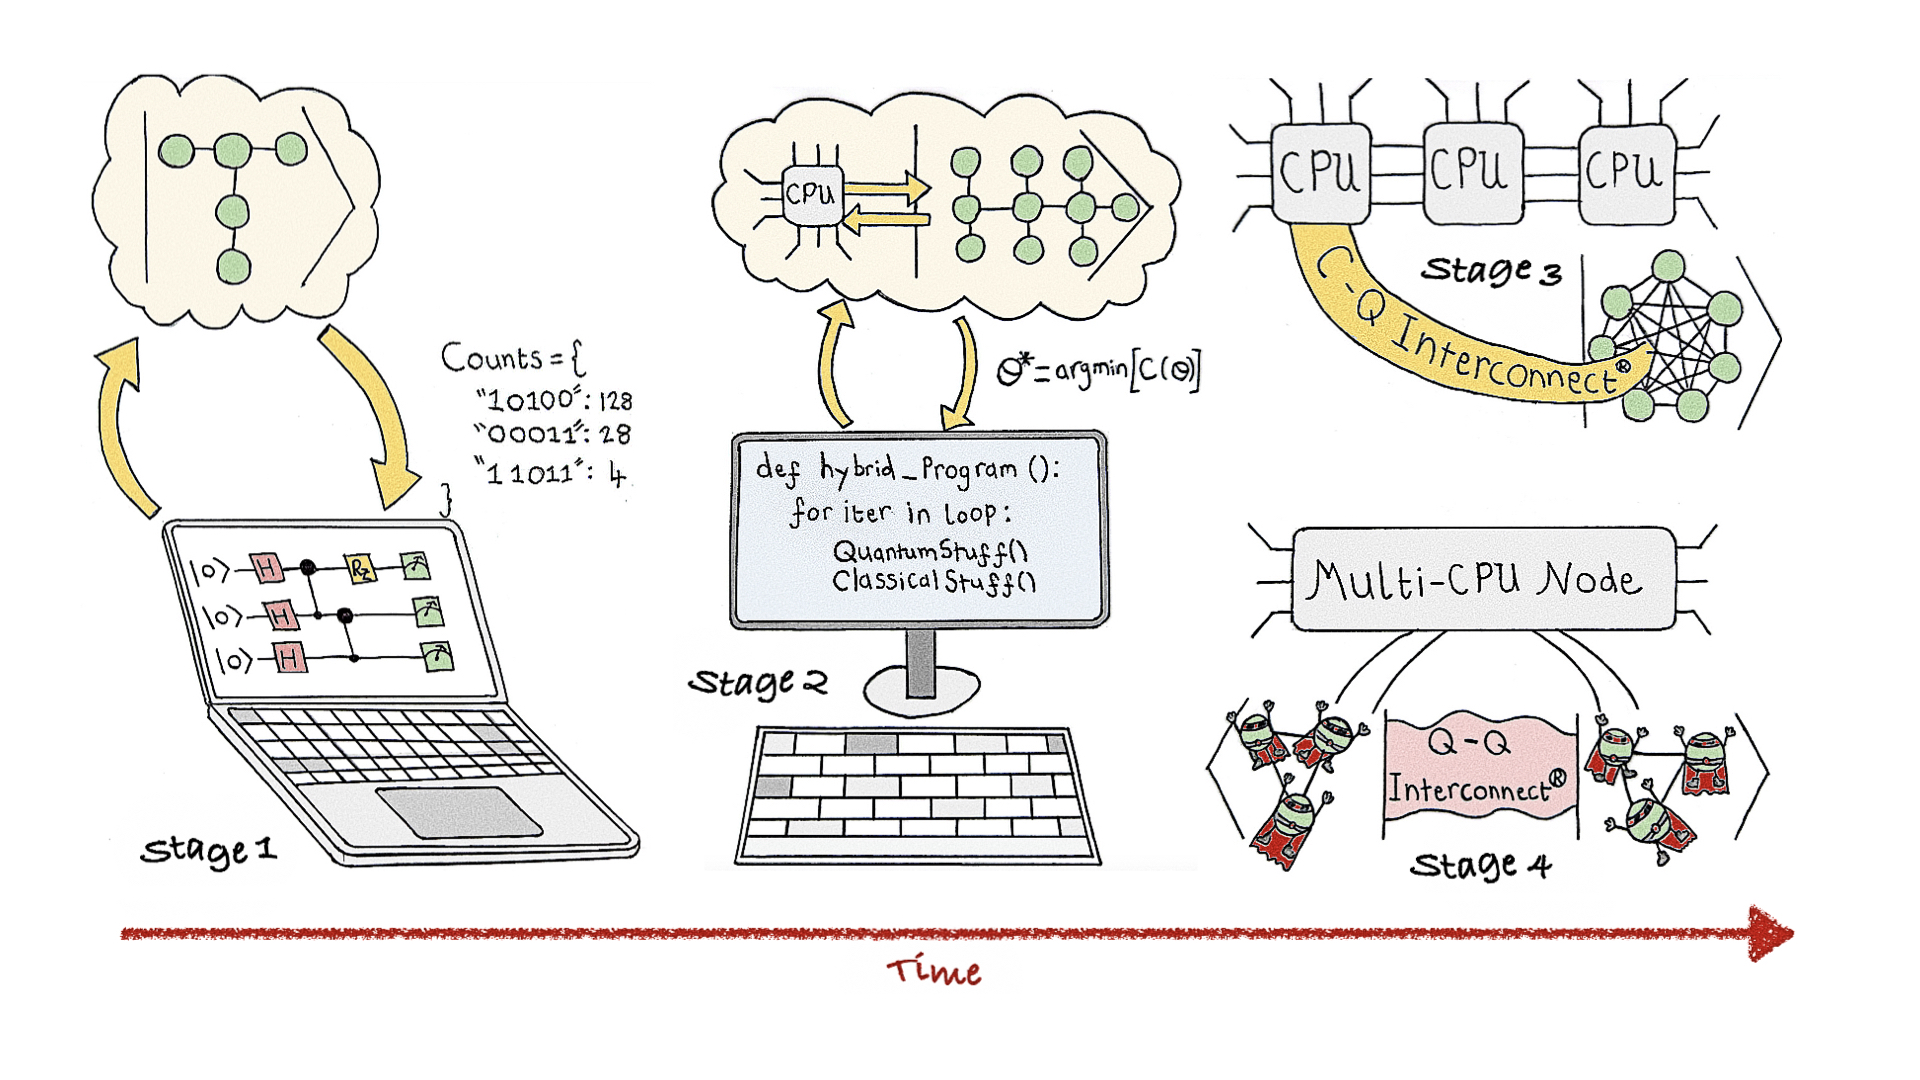 Counts = {
"10100": 128
"00011": 28
"11011": 4
}
|0> H Rz
|0> H
|0> H
Stage 1
CPU
θ* = argmin[C(θ)]
def hybrid_Program ():
for iter in loop:
QuantumStuff()
ClassicalStuff()
Stage 2
CPU CPU CPU
C-Q Interconnect®
Stage 3
Multi-CPU Node
Q-Q
Interconnect®
Stage 4
Time